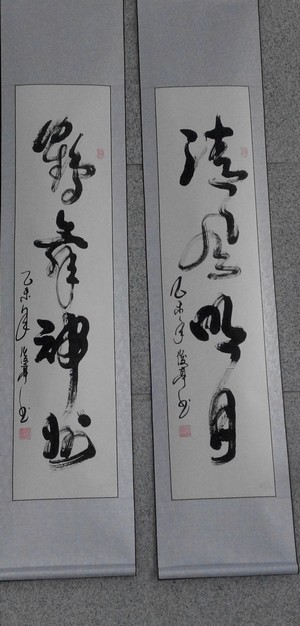 清风明月
乙未年
书
鹤舞神州
乙未年
书